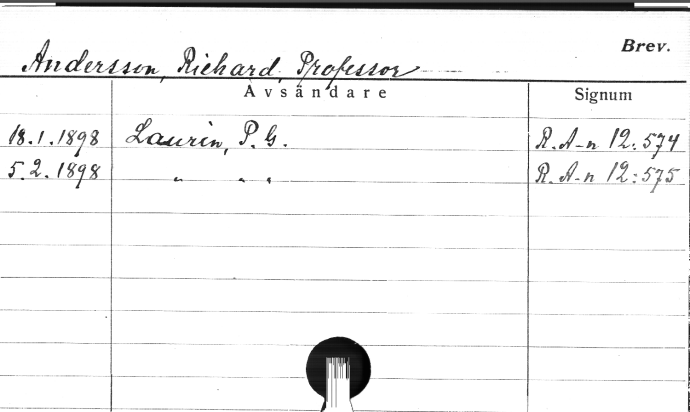 Brev.
Andersson, Richard, Professor
Avsändare Signum
18.1.1898 Laurin, P.G. R.A-n 12:574
5.2.1898 " " " R.A-n 12:575